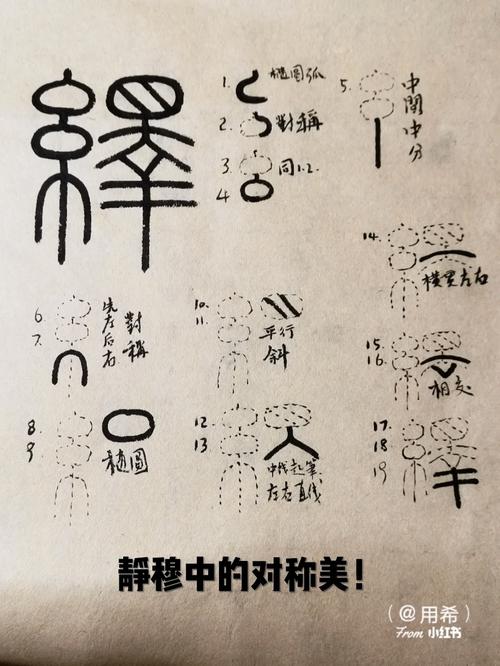 繹
1. 橢圓弧
2. 對稱
3. 同1.2.
4
5. 中間中分
6. 先左后右
7. 對稱
8.
9 橢圓
10.
11. 平行斜
12
13 中线起筆
左右直线
14. 横里左右
15.
16. 相交
17.
18
19
靜穆中的对称美!
(@用希)
From 小红书